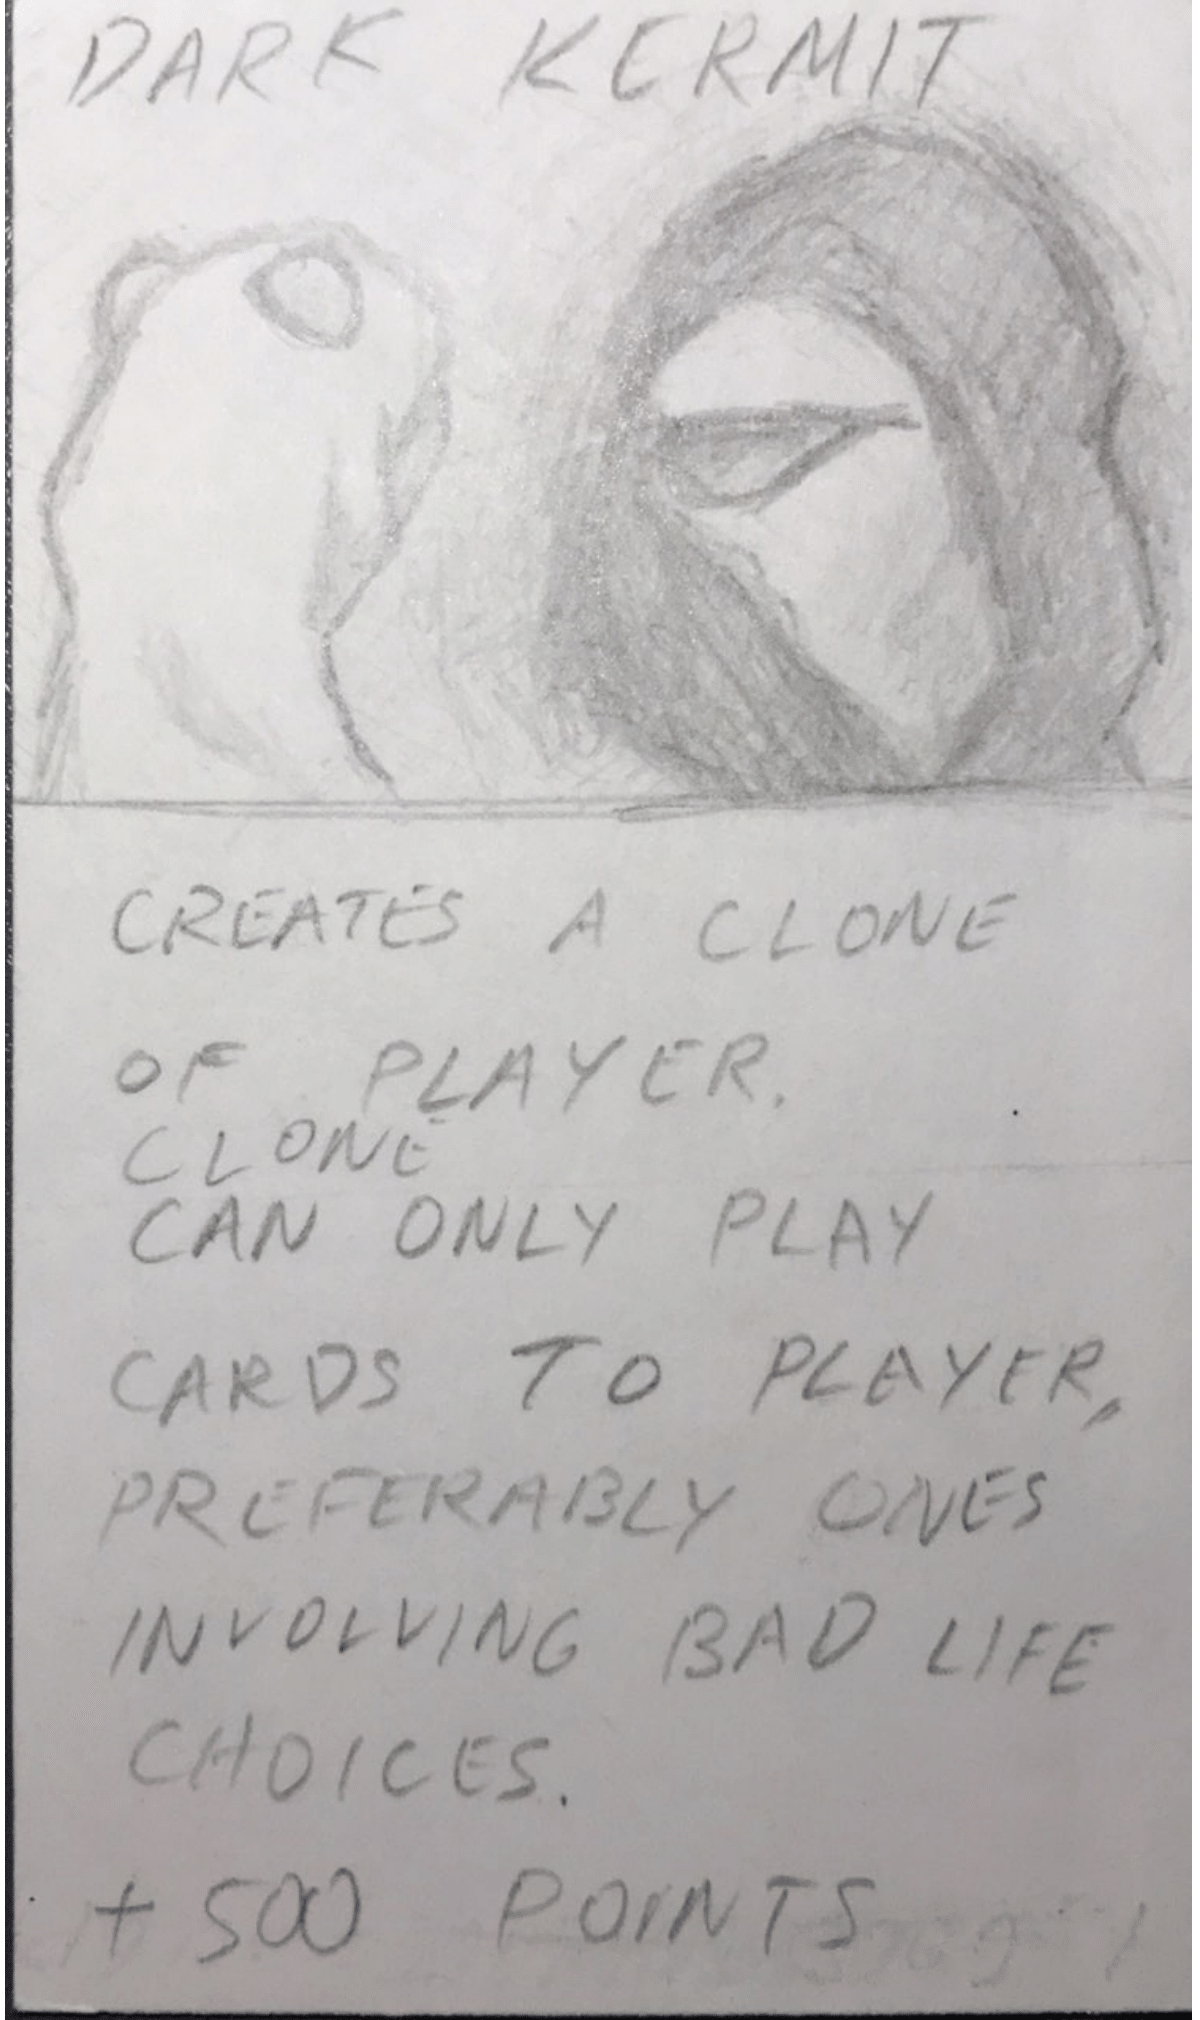 DARK KERMIT
CREATES A CLONE
OF PLAYER.
CLONE
CAN ONLY PLAY
CARDS TO PLAYER,
PREFERABLY ONES
INVOLVING BAD LIFE
CHOICES.
+500 POINTS